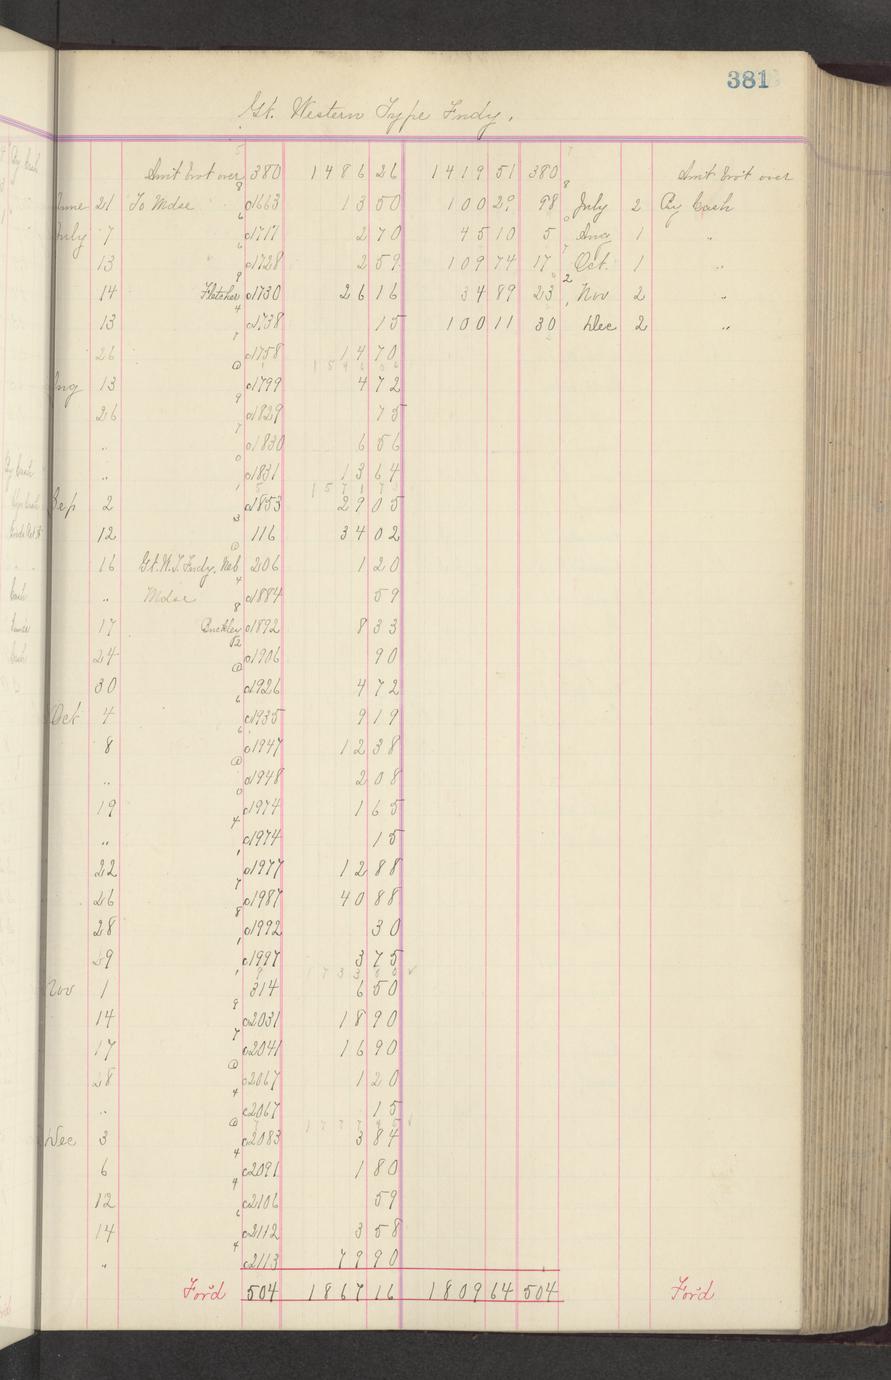 381
Gt. Western Type Fndy.
Am't bro't over 380 1486 26 1419 51 380 Am't bro't over
June 21 To Mdse c1663 13 50 100 29 98 July 2 By Cash
July 7 c1717 2 70 45 10 5 Aug 1 "
13 c1728 2 59 109 74 17 Oct. 1 "
14 Fletcher c1730 26 16 34 89 23 Nov 2 "
13 c1738 15 100 11 30 Dec 2 "
26 c1758 14 70
Aug 13 c1799 4 72
26 c1829 75
" c1830 6 56
" c1831 13 64
1571 73
Sep 2 c1853 29 05
12 116 34 02
16 Gt. W. T. Fndy, Neb 206 1 20
" Mdse c1884 59
17 Buckley c1892 8 33
24 c1906 90
30 c1926 4 72
Oct 4 c1935 9 19
8 c1947 12 38
" c1948 2 08
19 c1974 1 65
" c1974 15
22 c1977 12 88
26 c1987 40 88
28 c1992 30
29 c1997 3 75
1733 00 ✓
Nov 1 314 6 50
14 c2031 18 90
17 c2041 16 90
28 c2067 1 20
" c2067 15
Dec 3 c2083 3 84
6 c2091 1 80
12 c2106 59
14 c2112 3 58
" c2113 79 90
For'd 504 1867 16 1809 64 504 For'd